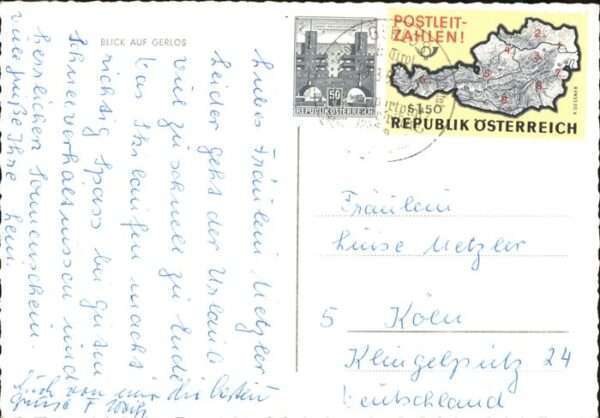 BLICK AUF GERLOS
Liebes Fräulein Metzler
Leider geht der Urlaub
viel zu schnell zu Ende
das Skilaufen macht
richtig Spass bei guten
Schneeverhältnissen und
herrlichem Sonnenschein.
viele Grüße Ihre
Auch von mir die besten
Grüße
50
REPUBLIK ÖSTERREICH
POSTLEIT-
ZAHLEN!
1
2
3
4
5
6
7
8
9
S1.50
REPUBLIK ÖSTERREICH
Tirol
Fräulein
Luise Metzler
5 Köln
Klingelpütz 24
Deutschland